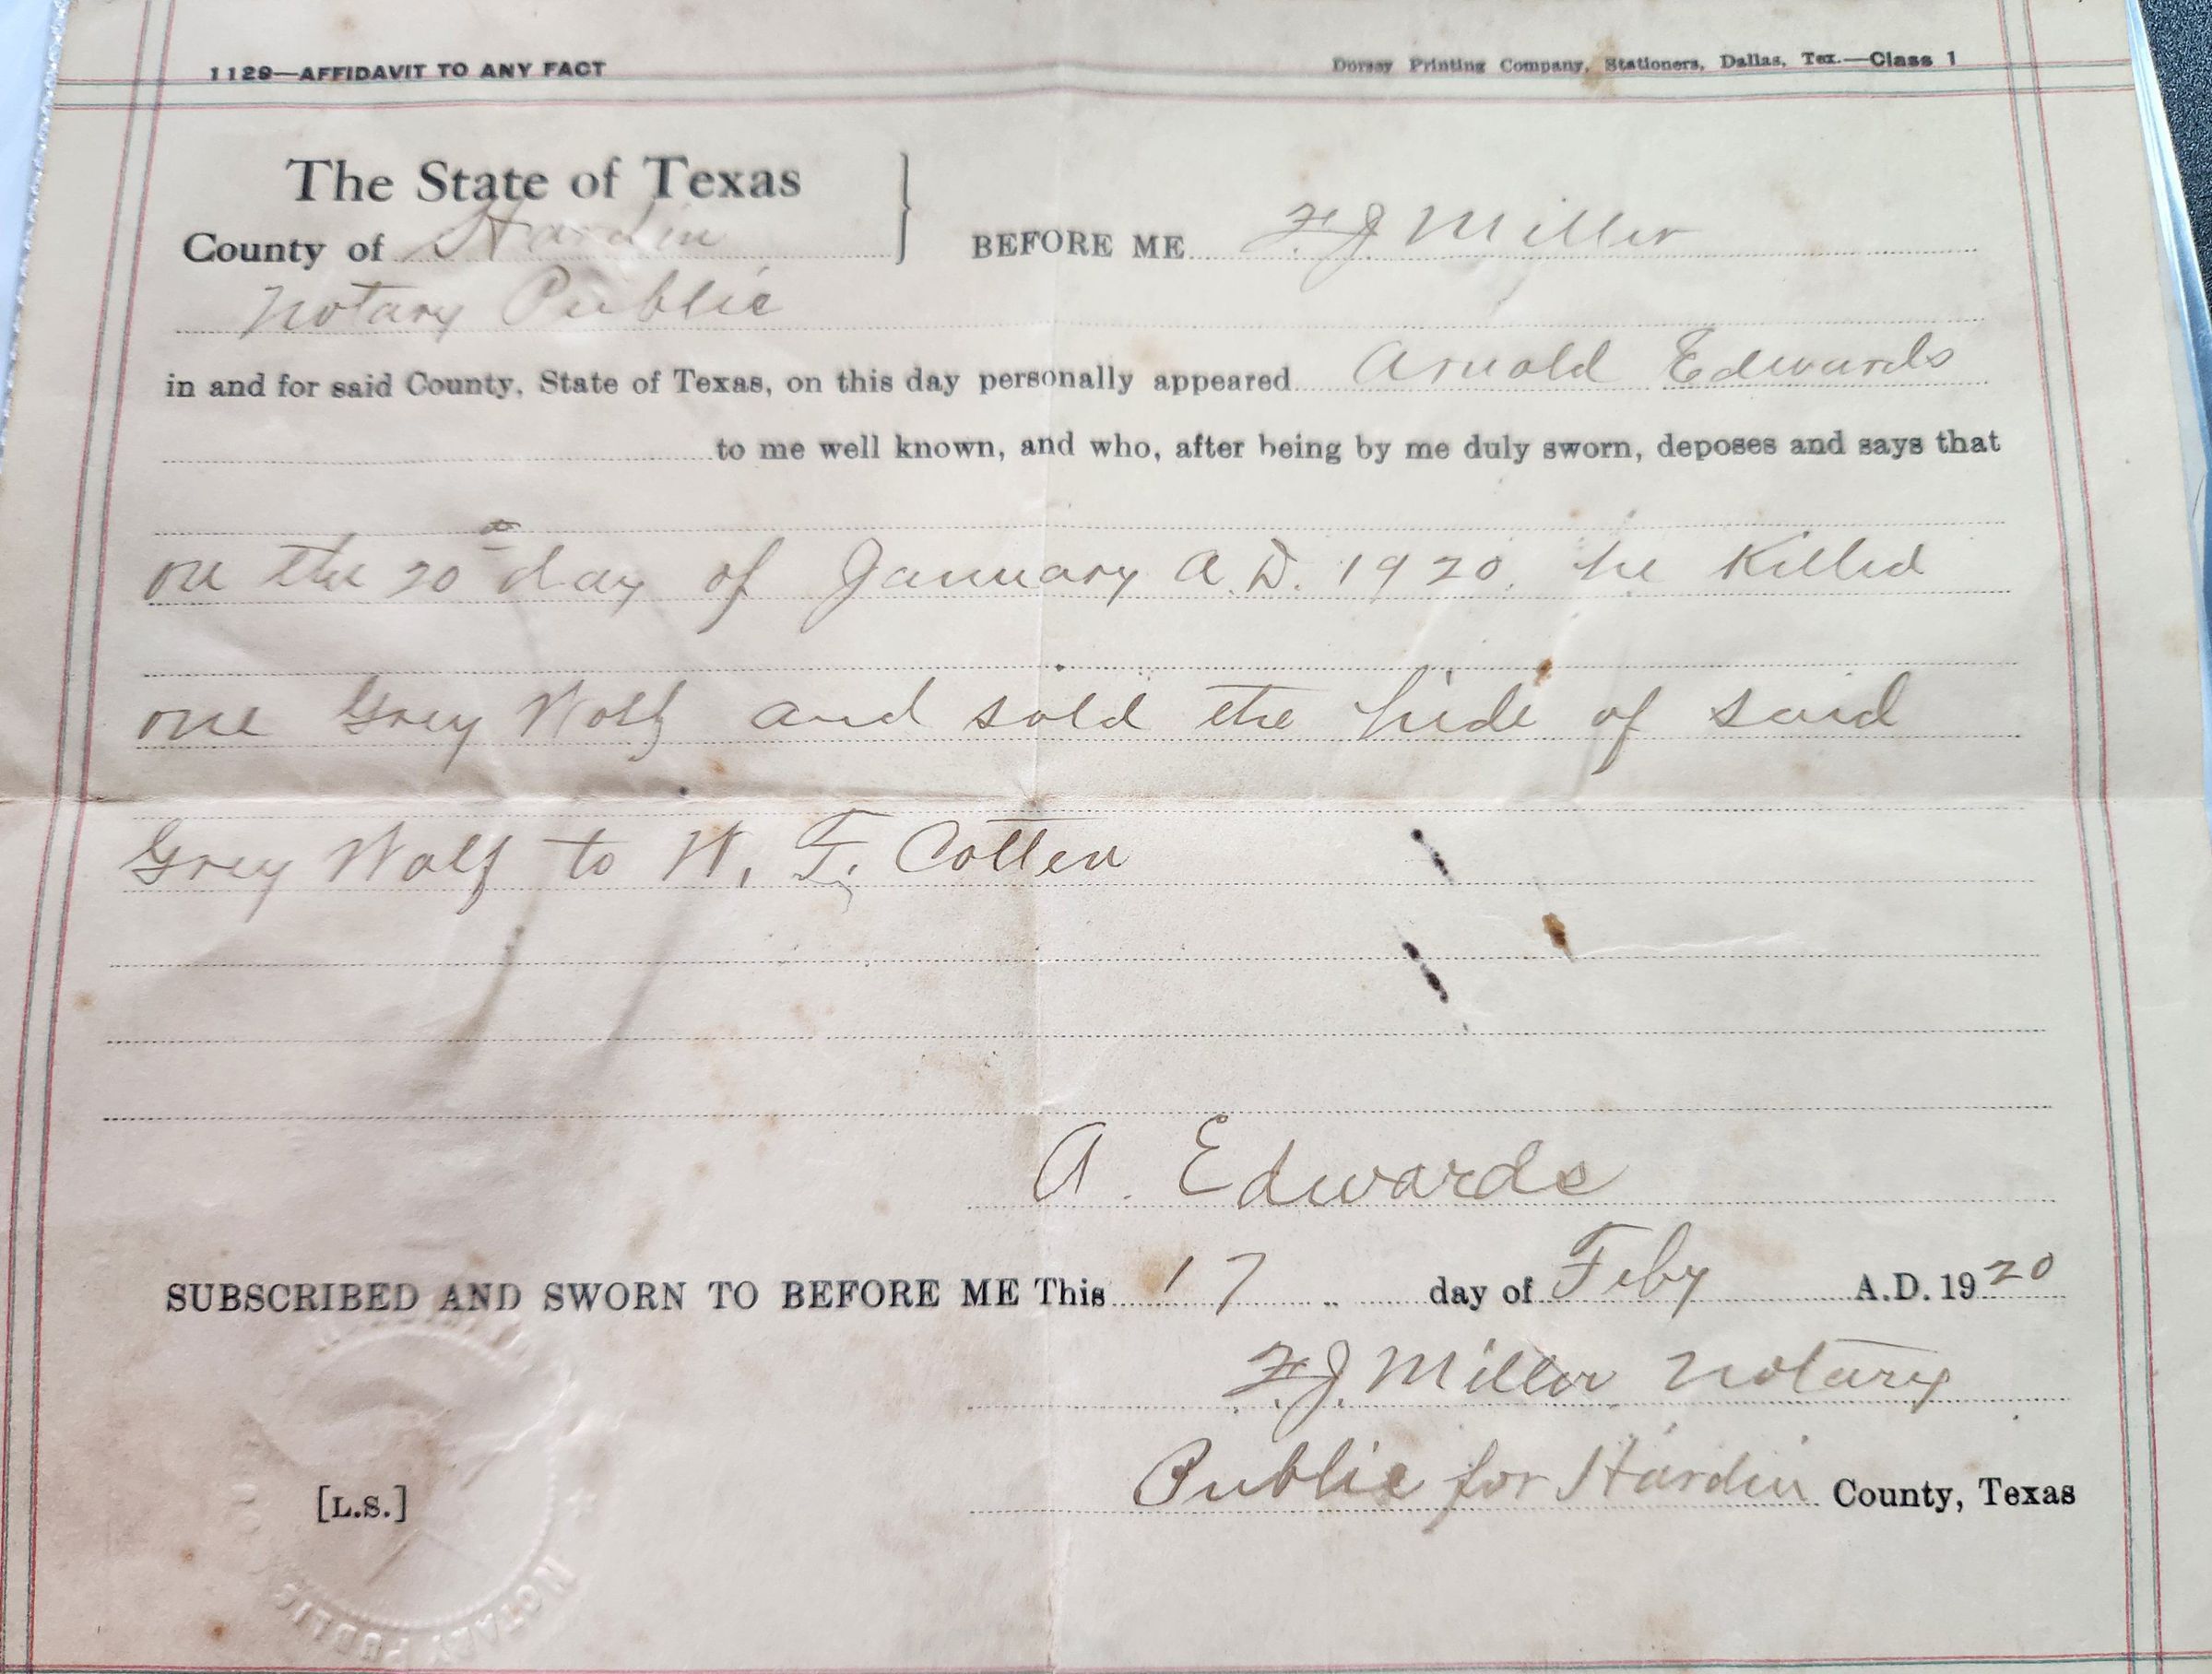 1129—AFFIDAVIT TO ANY FACT
Dorsey Printing Company, Stationers, Dallas, Tex.—Class 1
The State of Texas
County of Hardin } BEFORE ME F.J. Miller
Notary Public
in and for said County, State of Texas, on this day personally appeared Arnold Edwards
to me well known, and who, after being by me duly sworn, deposes and says that
on the 20th day of January A.D. 1920, he Killed
one Grey Wolf and sold the hide of said
Grey Wolf to W. T. Cotten
A. Edwards
SUBSCRIBED AND SWORN TO BEFORE ME This 17 day of Feby A.D. 1920
F.J. Miller Notary
Public for Hardin County, Texas
[L.S.]
NOTARY PUBLIC